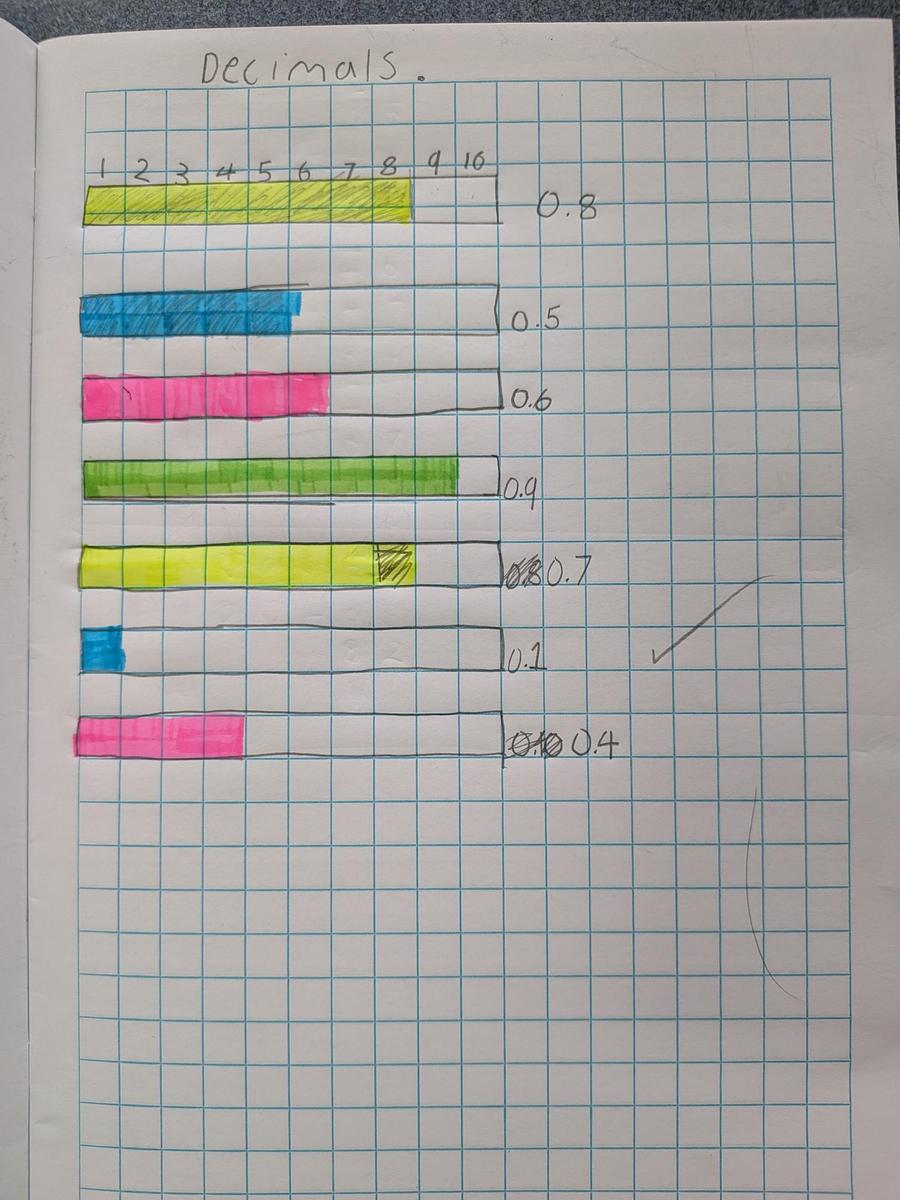 Decimals.
1 2 3 4 5 6 7 8 9 10
0.8
0.5
0.6
0.9
0.7
0.1
0.4